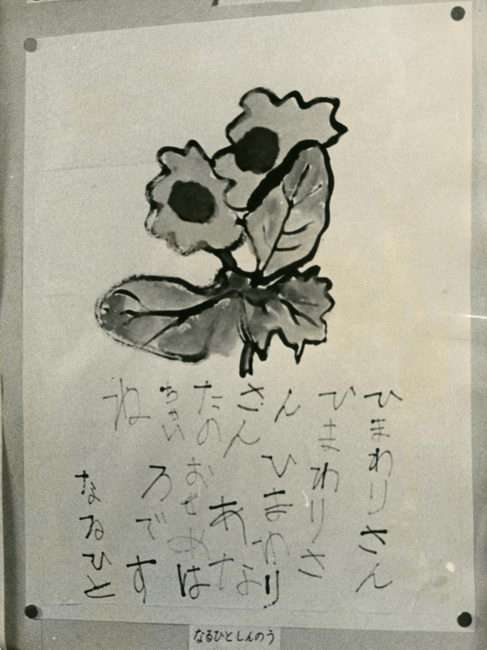 ひまわりさん
ひまわりさ
ん ひまわり
さん あな
たの おめめは
ちゃい ろです
ね
なるひと
なるひとしんのう